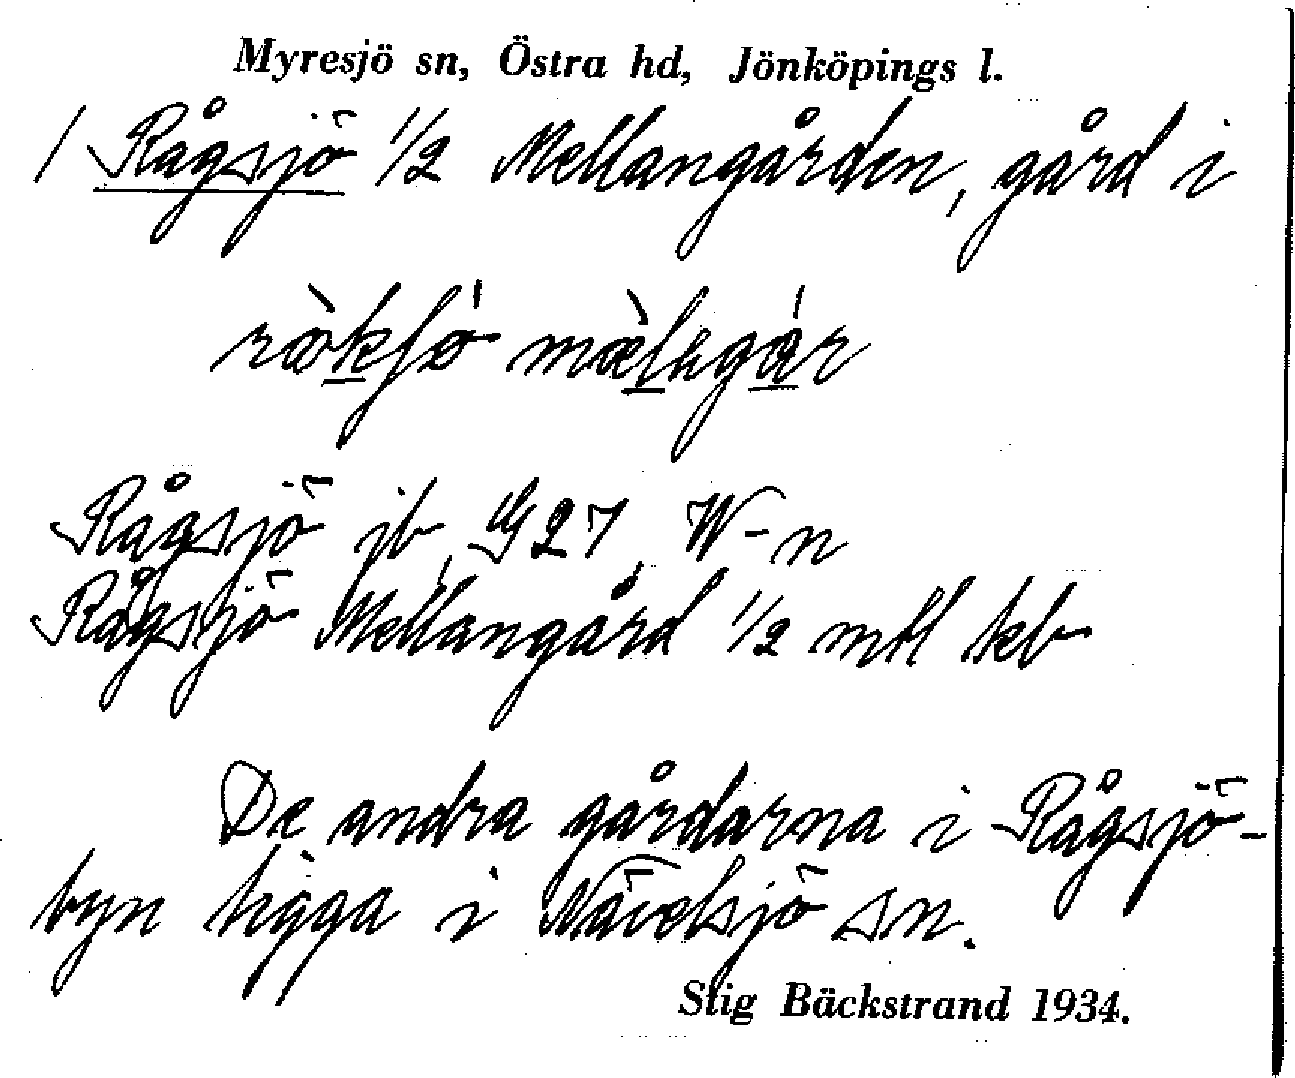 Myresjö sn, Östra hd, Jönköpings l.
/ Rågsjö 1/2 Mellangården, gård i
Rågsjö jb, G 27, W-n
Rågsjö Mellangård 1/2 mtl kb
De andra gårdarna i Rågsjö-
byn ligga i Nävelsjö sn.
Stig Bäckstrand 1934.